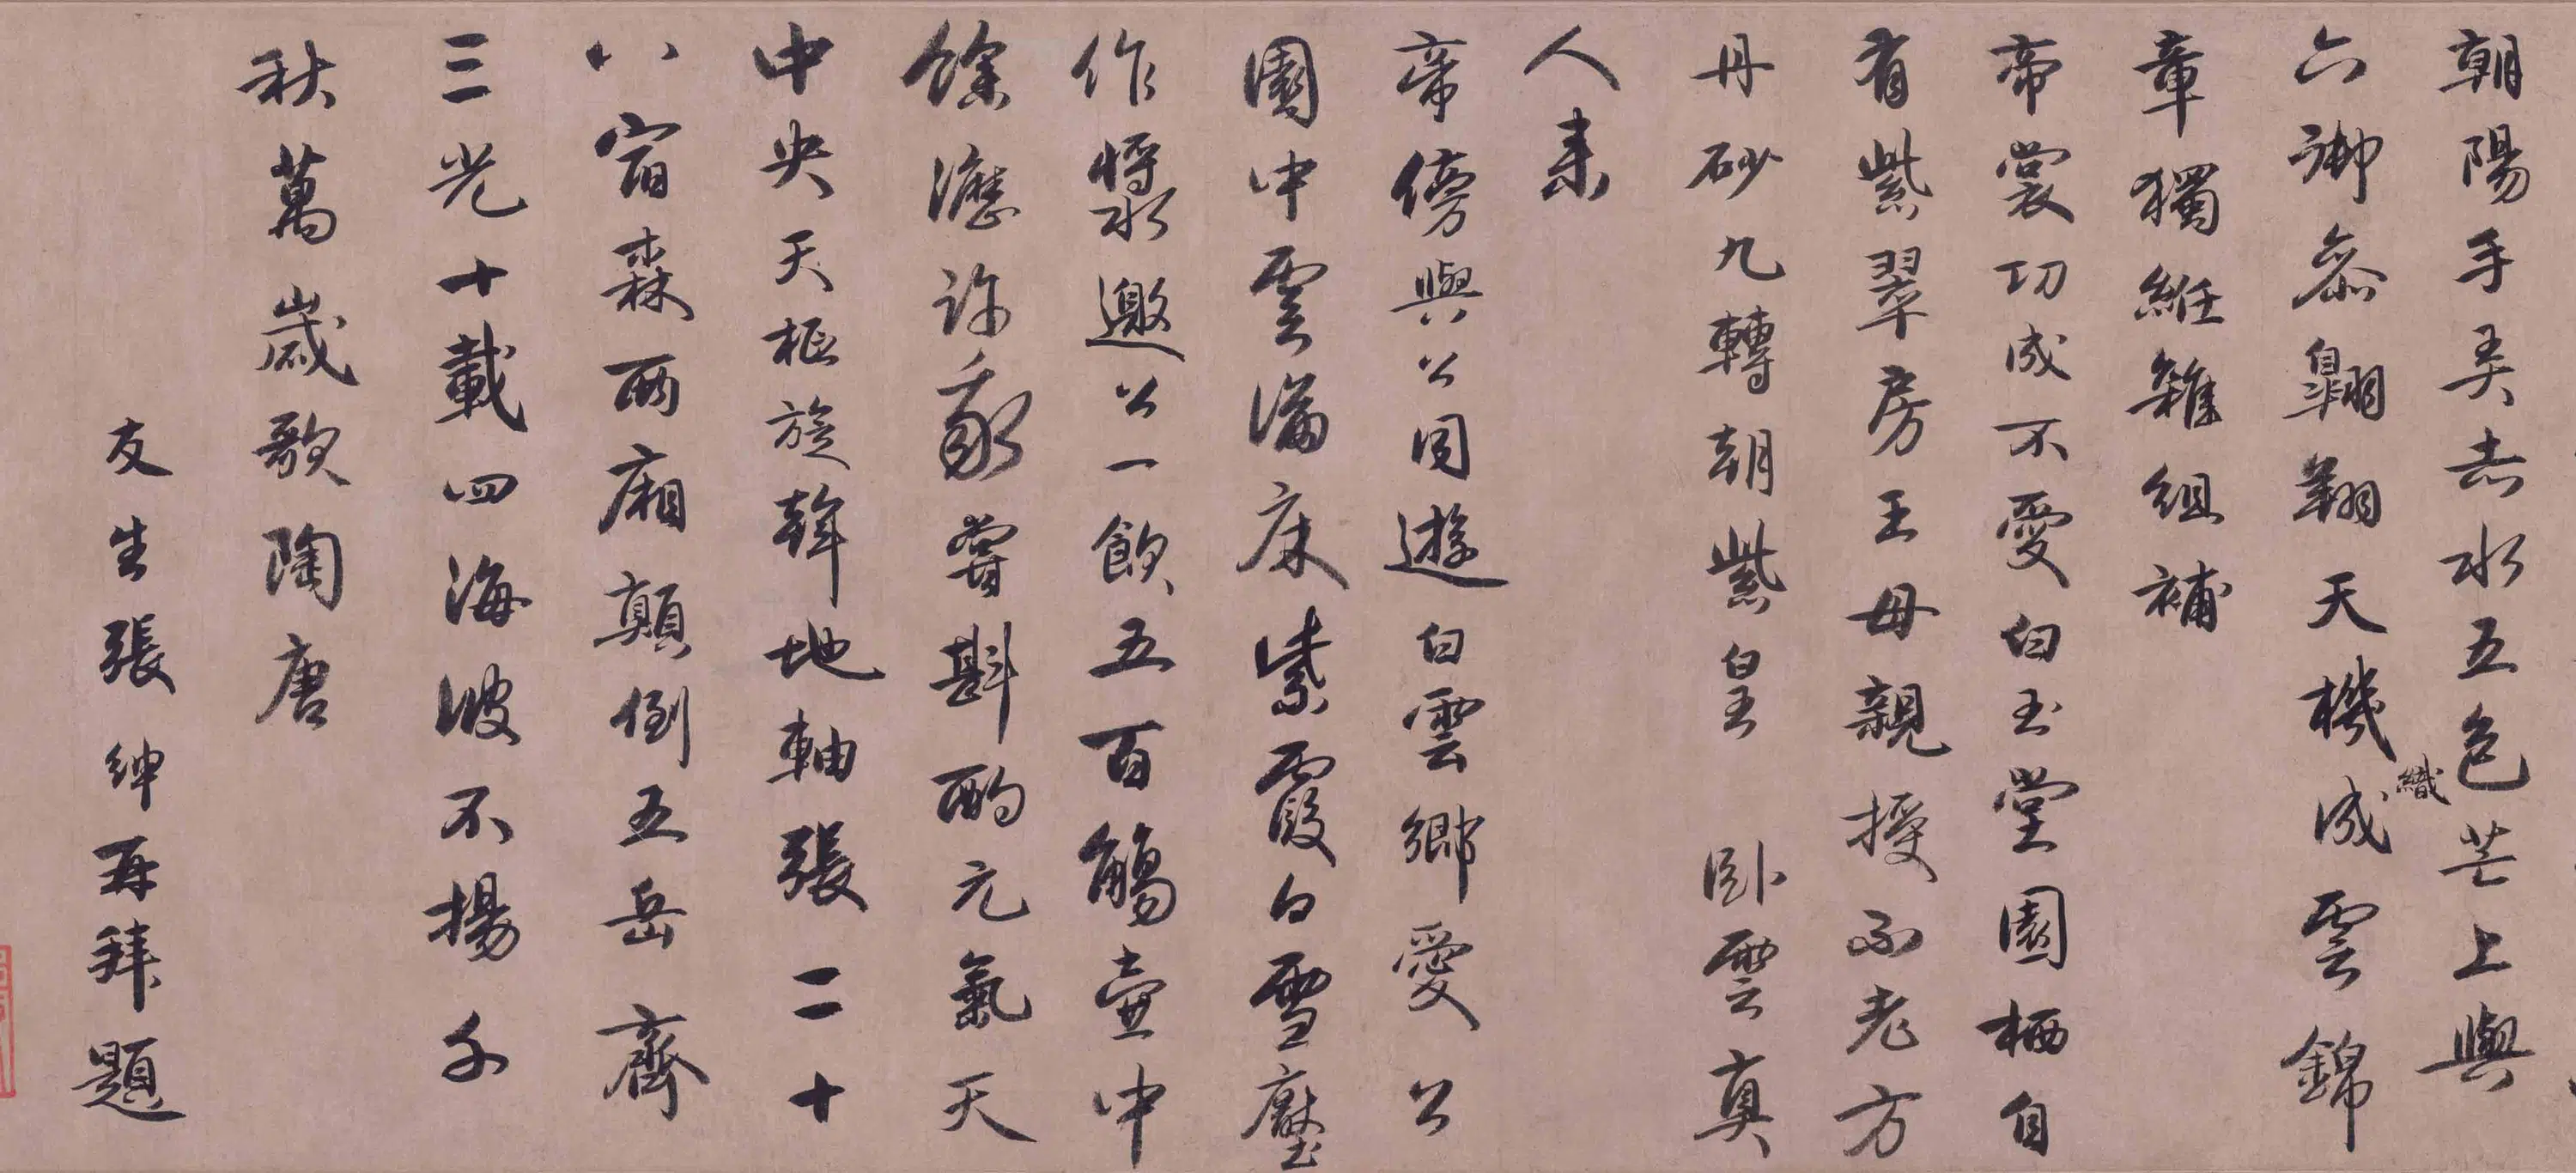 朝陽手弄赤水五色芒上與
六御參翱翔天機織成雲錦
章獨絍雜組補
帝裳功成不愛白玉堂園栖自
有紫翠房王母親授不老方
丹砂九轉朝紫皇臥雲真
人来
帝傍與公同遊白雲鄉愛公
園中雲滿床紫霞白雪壓
作漿邀公一飲五百觴壺中
餘瀝許我嘗斟酌元氣天
中央天樞旋斡地軸張二十
八宿森兩廂顛倒五岳齊
三光十載四海波不揚千
秋萬歲歌陶唐
友生張紳再拜題